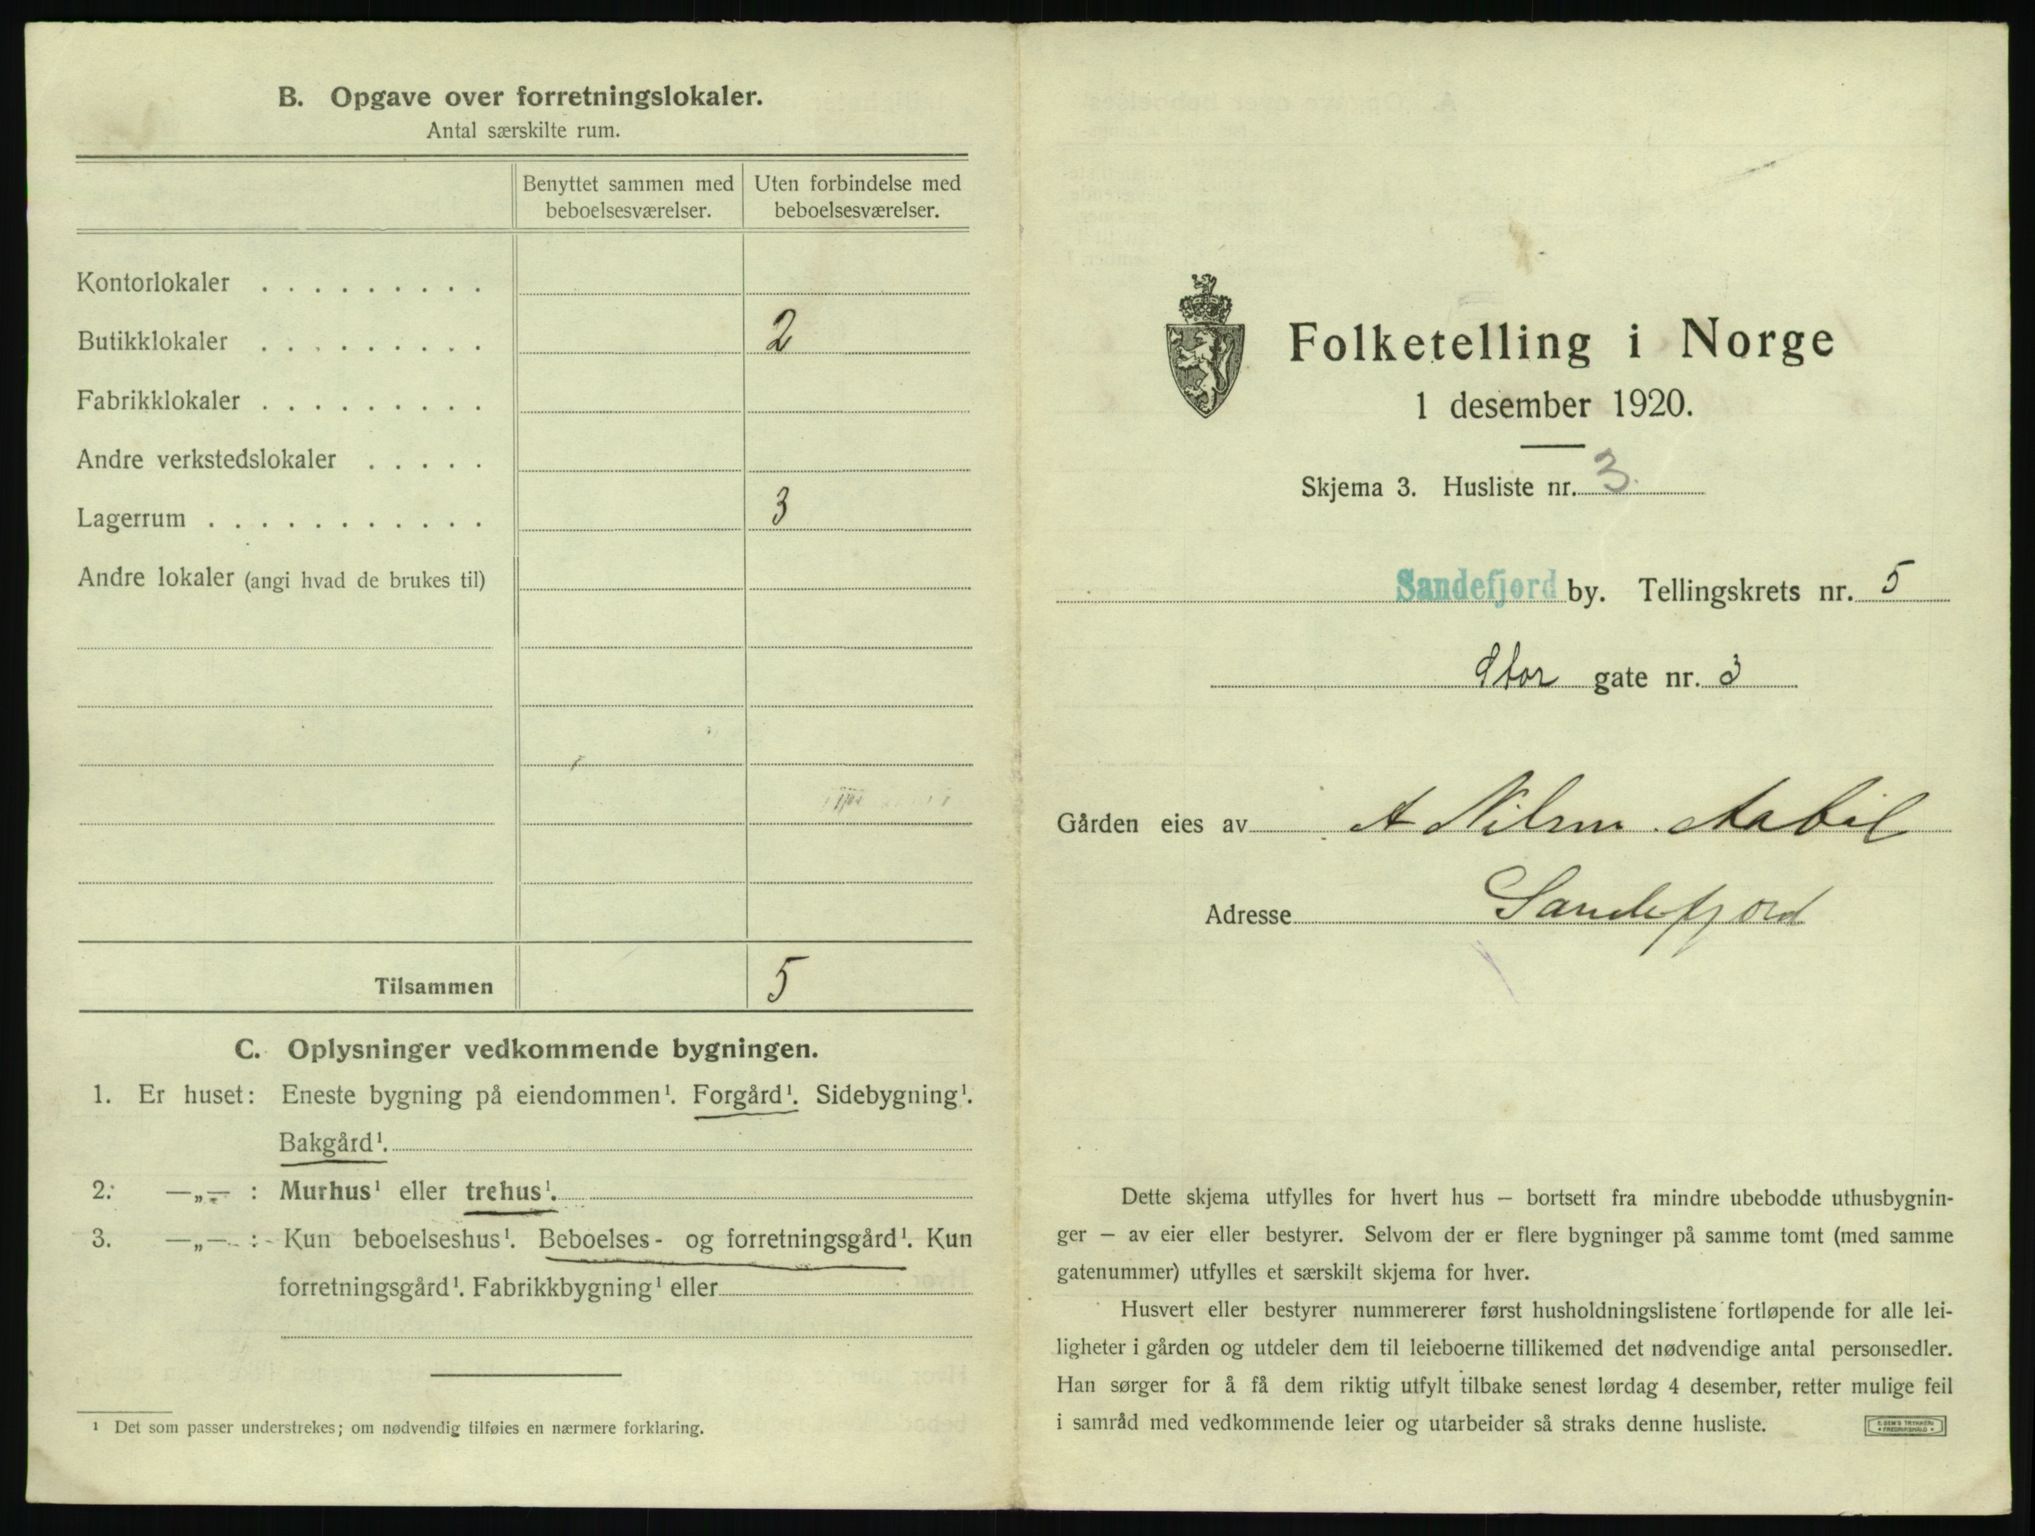 B. Opgave over forretningslokaler.
Antal særskilte rum.
Benyttet sammen med beboelsesværelser.
Uten forbindelse med beboelsesværelser.
Kontorlokaler . . . . . . . . .
Butikklokaler . . . . . . . . . 2
Fabrikklokaler . . . . . . . . .
Andre verkstedslokaler . . . . .
Lagerrum . . . . . . . . . . . 3
Andre lokaler (angi hvad de brukes til)
Tilsammen 5
C. Oplysninger vedkommende bygningen.
1. Er huset: Eneste bygning på eiendommen¹. Forgård¹. Sidebygning¹.
Bakgård¹.
2. —„— : Murhus¹ eller trehus¹.
3. —„— : Kun beboelseshus¹. Beboelses- og forretningsgård¹. Kun
forretningsgård¹. Fabrikkbygning¹ eller
¹ Det som passer understrekes; om nødvendig tilføies en nærmere forklaring.
Folketelling i Norge
1 desember 1920.
Skjema 3. Husliste nr. 3
Sandefjord by. Tellingskrets nr. 5
Stor gate nr. 3
Gården eies av A Nilsen
Adresse Sandefjord
Dette skjema utfylles for hvert hus – bortsett fra mindre ubebodde uthusbygnin-
ger – av eier eller bestyrer. Selvom der er flere bygninger på samme tomt (med samme
gatenummer) utfylles et særskilt skjema for hver.
Husvert eller bestyrer nummererer først husholdningslistene fortløpende for alle lei-
ligheter i gården og utdeler dem til leieboerne tillikemed det nødvendige antal personsedler.
Han sørger for å få dem riktig utfylt tilbake senest lørdag 4 desember, retter mulige feil
i samråd med vedkommende leier og utarbeider så straks denne husliste.